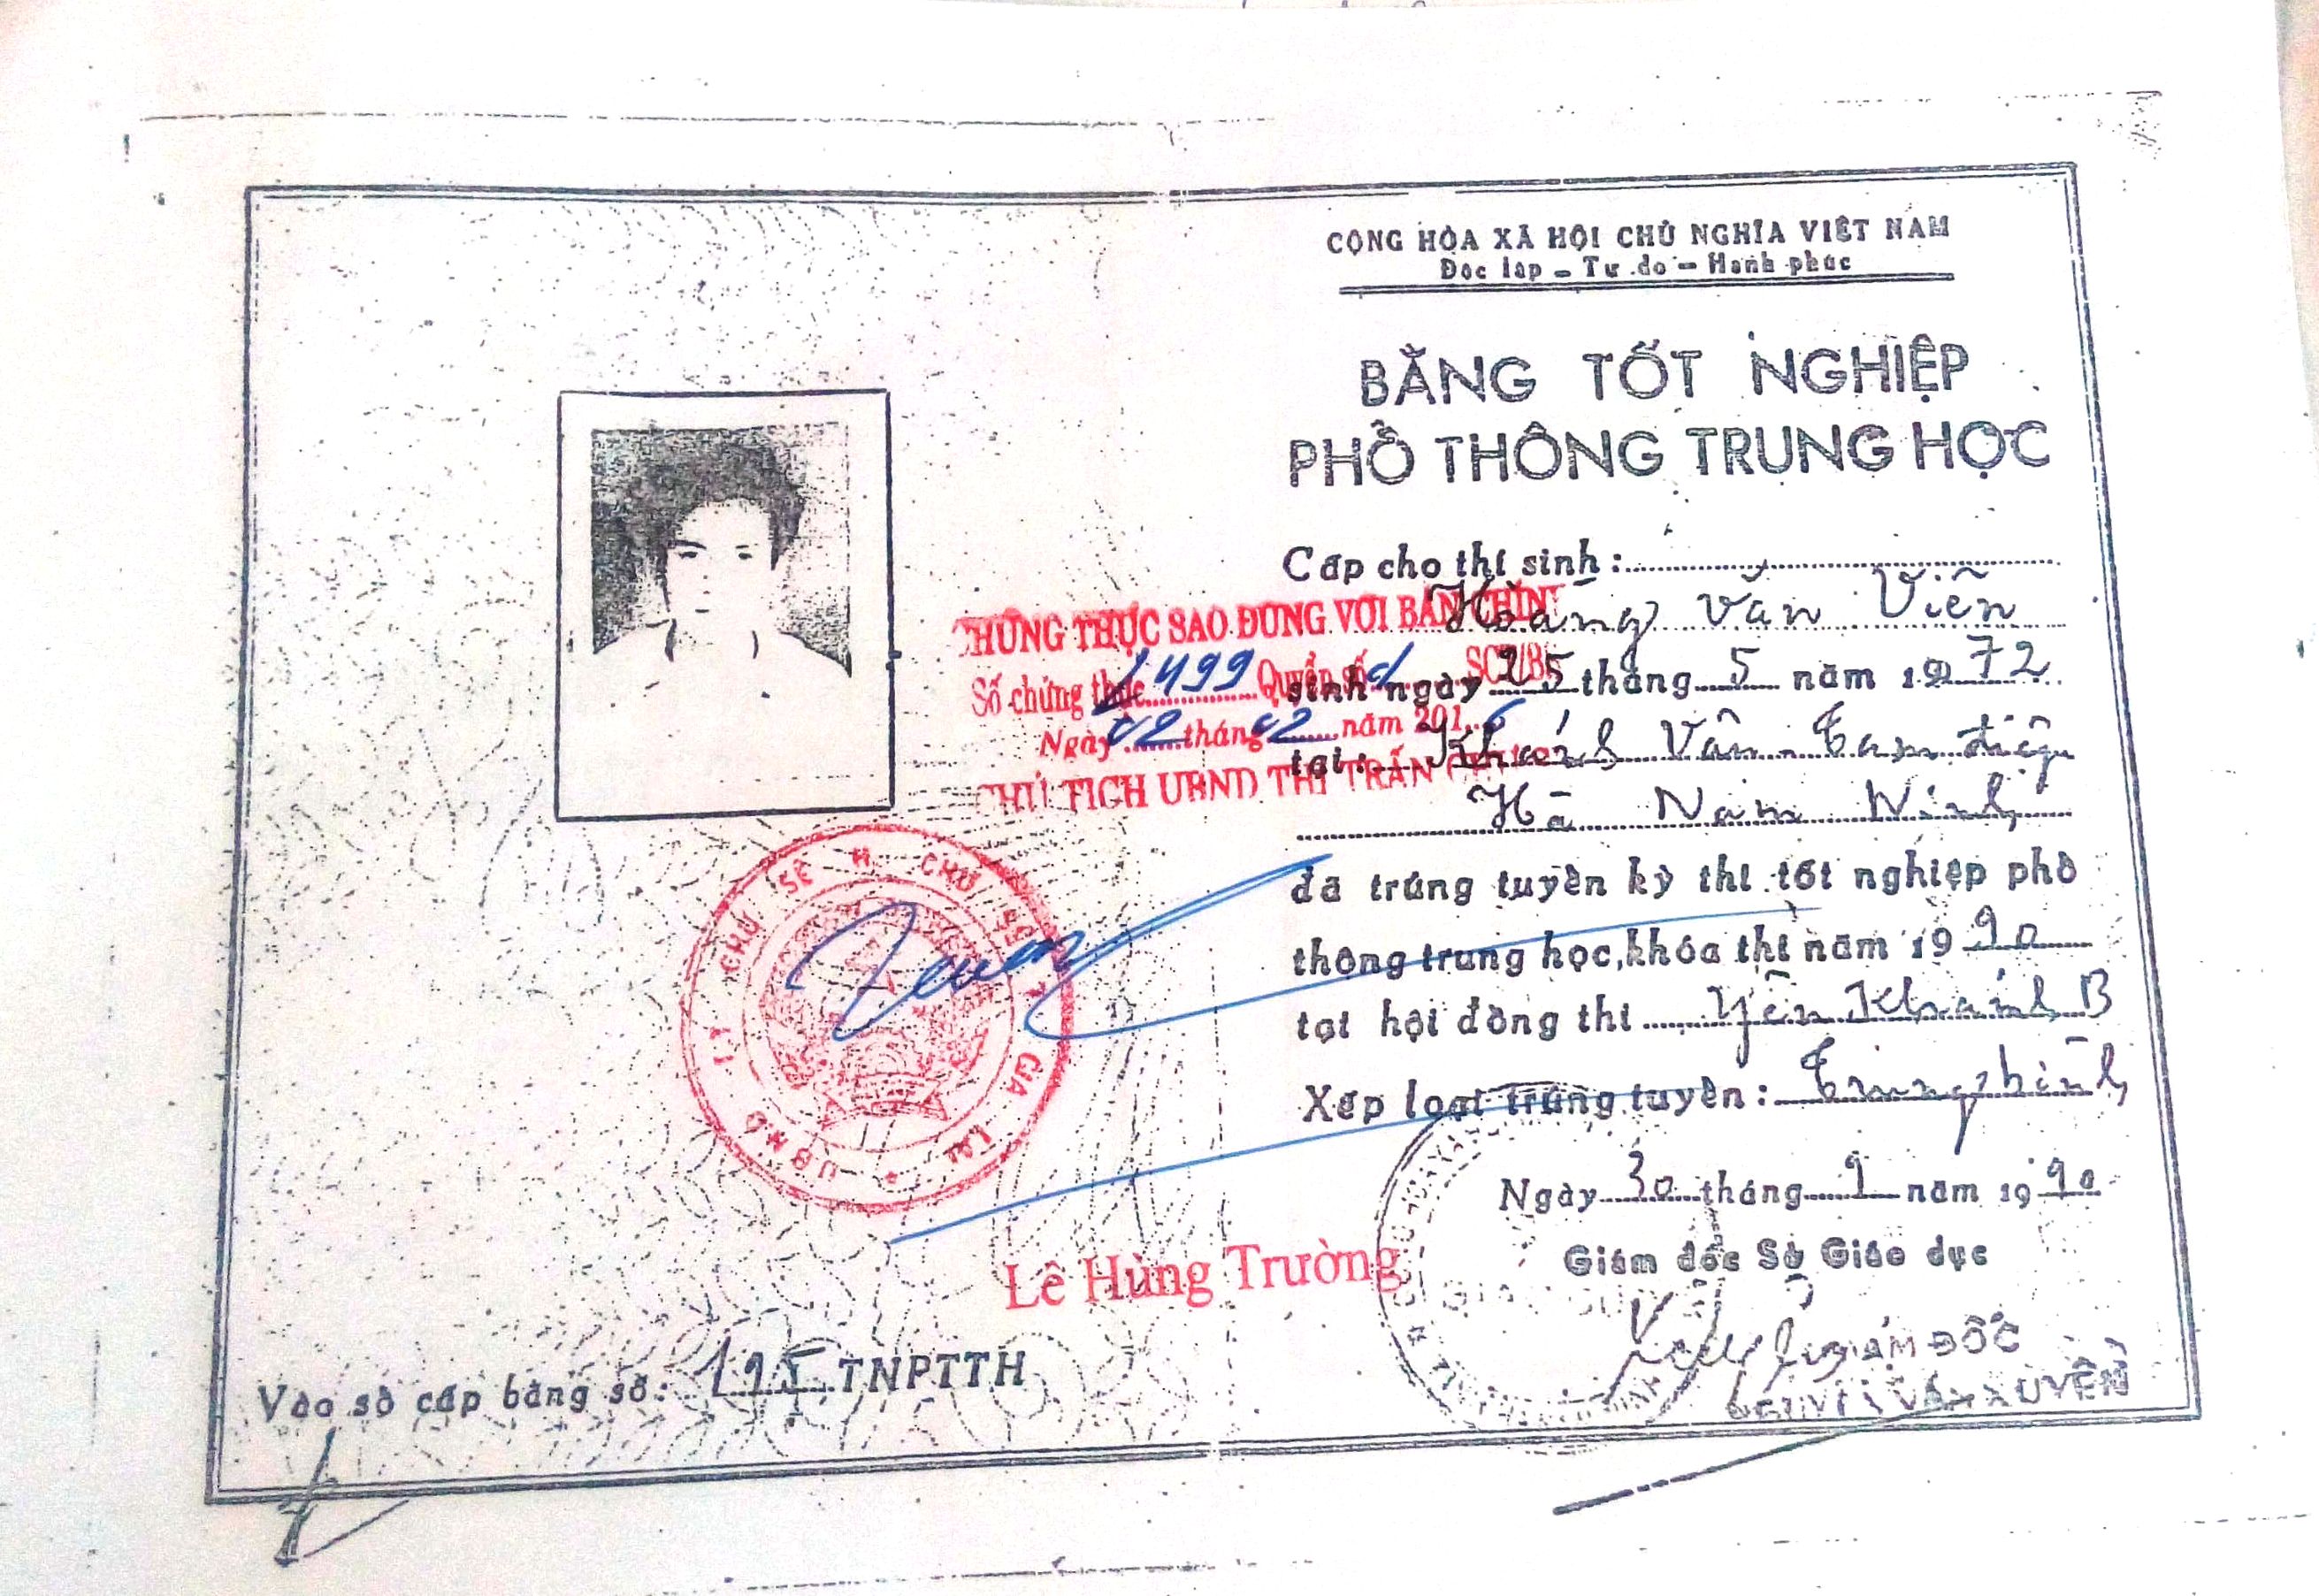 CỘNG HÒA XÃ HỘI CHỦ NGHĨA VIỆT NAM
Độc lập - Tự do - Hạnh phúc
BẰNG TỐT NGHIỆP
PHỔ THÔNG TRUNG HỌC
Cấp cho thí sinh:
Hoàng Văn Viễn
sinh ngày 25 tháng 5 năm 1972
tại: Khánh Vân - Tam điệp
Hà Nam Ninh
đã trúng tuyển kỳ thi tốt nghiệp phổ
thông trung học, khóa thi năm 1990
tại hội đồng thi Yên Khánh B
Xếp loại trúng tuyển: Trung bình
Ngày 30 tháng 9 năm 1990
Giám đốc Sở Giáo dục
GIÁM ĐỐC
VĂN XUYÊN
CHỨNG THỰC SAO ĐÚNG VỚI BẢN CHÍNH
Số chứng thực 1499 Quyển số SCT/BS
Ngày 02 tháng 02 năm 2016
CHỦ TỊCH UBND THỊ TRẤN
U.B.N.D T.T CHƯ SÊ H CHƯ SÊ T GIA LAI
Lê Hùng Trường
Vào sổ cấp bằng số: 195 TNPTTH